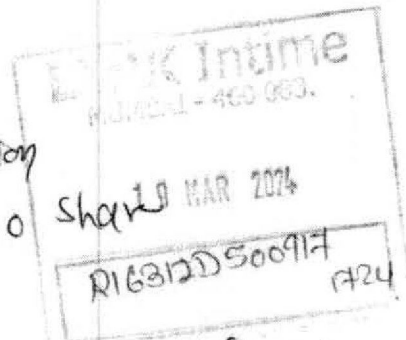 LINK Intime
MUMBAI - 400 083.
on
o Share
19 MAR 2024
R16312D500917
1724